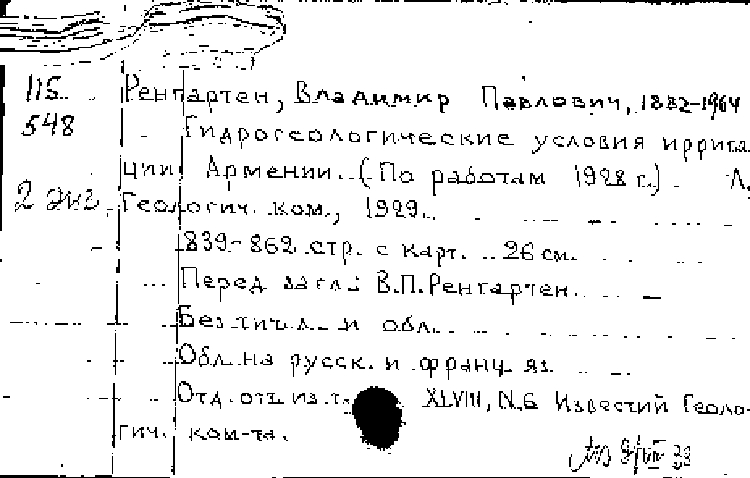 115
548
2 экз.
Ренгартен, Владимир Павлович, 1882-1964
Гидрогеологические условия иррига-
ции Армении. (По работам 1928 г.) Л.,
Геологич. ком., 1929.
839-862 стр. с карт. 26 см.
Перед загл.: В.П. Ренгартен.
Без тит. л. и обл.
Обл. на русск. и франц. яз.
Отд. отт. из т. XLVIII, N.6 Известий Геоло-
гич. ком-та.